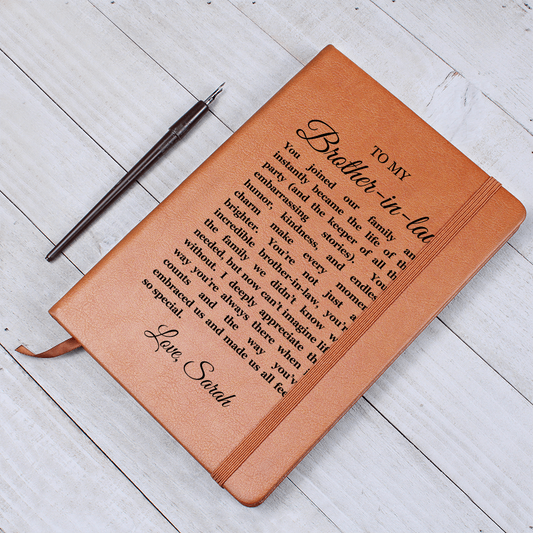 TO MY
Brother-in-law
You joined our family an
instantly became the life of th
party (and the keeper of all th
embarrassing stories). You
humor, kindness, and endles
charm make every momen
brighter. You're not just a
incredible brother-in-law, you'r
the family we didn't know w
needed, but now can't imagine lif
without. I deeply appreciate th
way you're always there when i
counts and the way you'v
embraced us and made us all fee
so special.
Love, Sarah